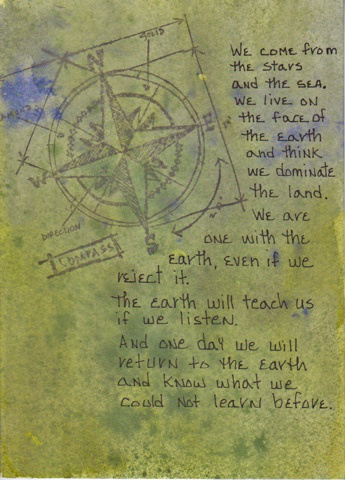 We come from
the stars
and the sea.
We live on
the face of
the earth
and think
we dominate
the land.
We are
one with the
earth, even if we
reject it.
The earth will teach us
if we listen.
And one day we will
return to the earth
and know what we
could not learn before.
N
W
DIRECTION
COMPASS